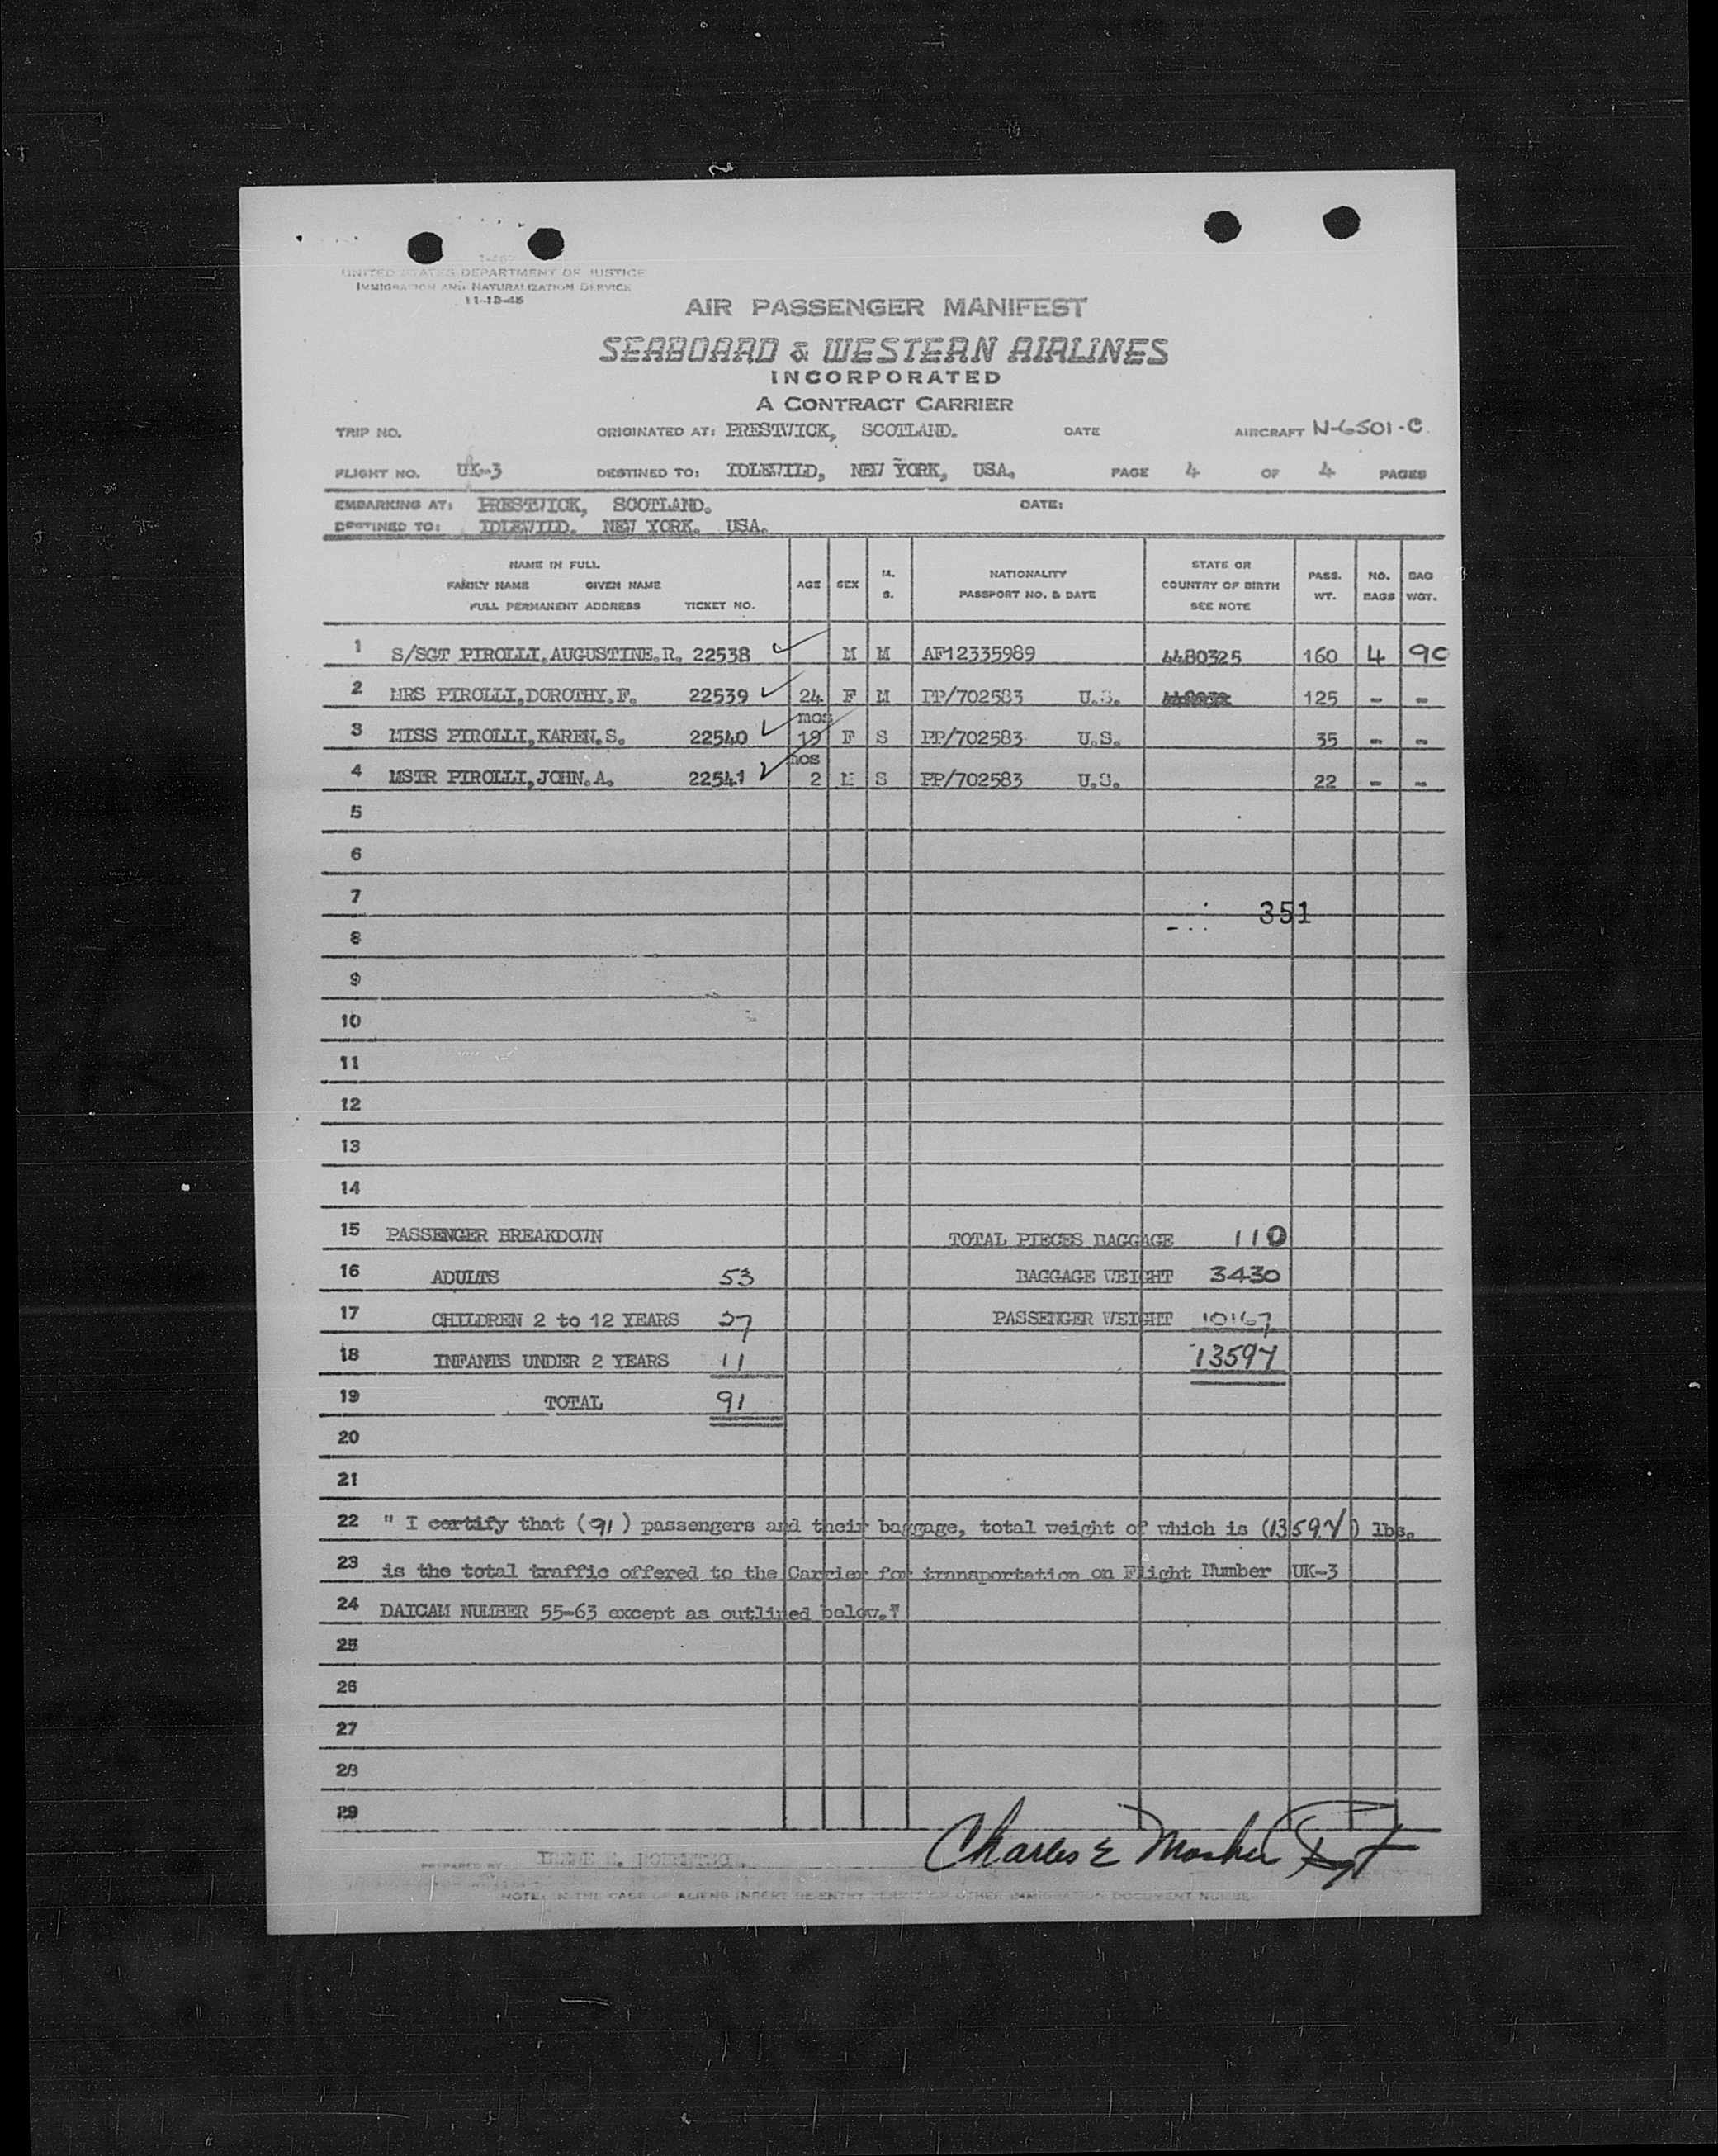 UNITED STATES DEPARTMENT OF JUSTICE
IMMIGRATION AND NATURALIZATION SERVICE
11-15-45
AIR PASSENGER MANIFEST
SEABOARD & WESTERN AIRLINES
INCORPORATED
A CONTRACT CARRIER
TRIP NO. ORIGINATED AT: PRESTWICK, SCOTLAND. DATE AIRCRAFT N-6501-C.
FLIGHT NO. UK-3 DESTINED TO: IDLEWILD, NEW YORK, USA. PAGE 4 OF 4 PAGES
EMBARKING AT: PRESTWICK, SCOTLAND. DATE:
DESTINED TO: IDLEWILD. NEW YORK. USA.
NAME IN FULL
FAMILY NAME GIVEN NAME
FULL PERMANENT ADDRESS TICKET NO. AGE SEX M. S. NATIONALITY PASSPORT NO. & DATE STATE OR COUNTRY OF BIRTH SEE NOTE PASS. WT. NO. BAGS BAG WGT.
1 S/SGT PIROLLI.AUGUSTINE.R. 22538 M M AF12335989 4480325 160 4 90
2 MRS PIROLLI,DOROTHY.F. 22539 24 F M PP/702583 U.S. 125 - -
3 MISS PIROLLI,KAREN.S. 22540 mos 19 F S PP/702583 U.S. 35 - -
4 MSTR PIROLLI,JOHN.A. 22541 mos 2 M S PP/702583 U.S. 22 - -
5
6
7
351
8
9
10
11
12
13
14
15 PASSENGER BREAKDOWN TOTAL PIECES BAGGAGE 110
16 ADULTS 53 BAGGAGE WEIGHT 3430
17 CHILDREN 2 to 12 YEARS 27 PASSENGER WEIGHT 10167
18 INFANTS UNDER 2 YEARS 11 13597
19 TOTAL 91
20
21
22 " I certify that (91) passengers and their baggage, total weight of which is (13597) lbs.
23 is the total traffic offered to the Carrier for transportation on Flight Number UK-3
24 DAICAM NUMBER 55-63 except as outlined below."
25
26
27
28
29
Charles E Mosher
PREPARED BY
NOTE: IN THE CASE OF ALIENS INSERT RE-ENTRY PERMIT OR OTHER IMMIGRATION DOCUMENT NUMBER